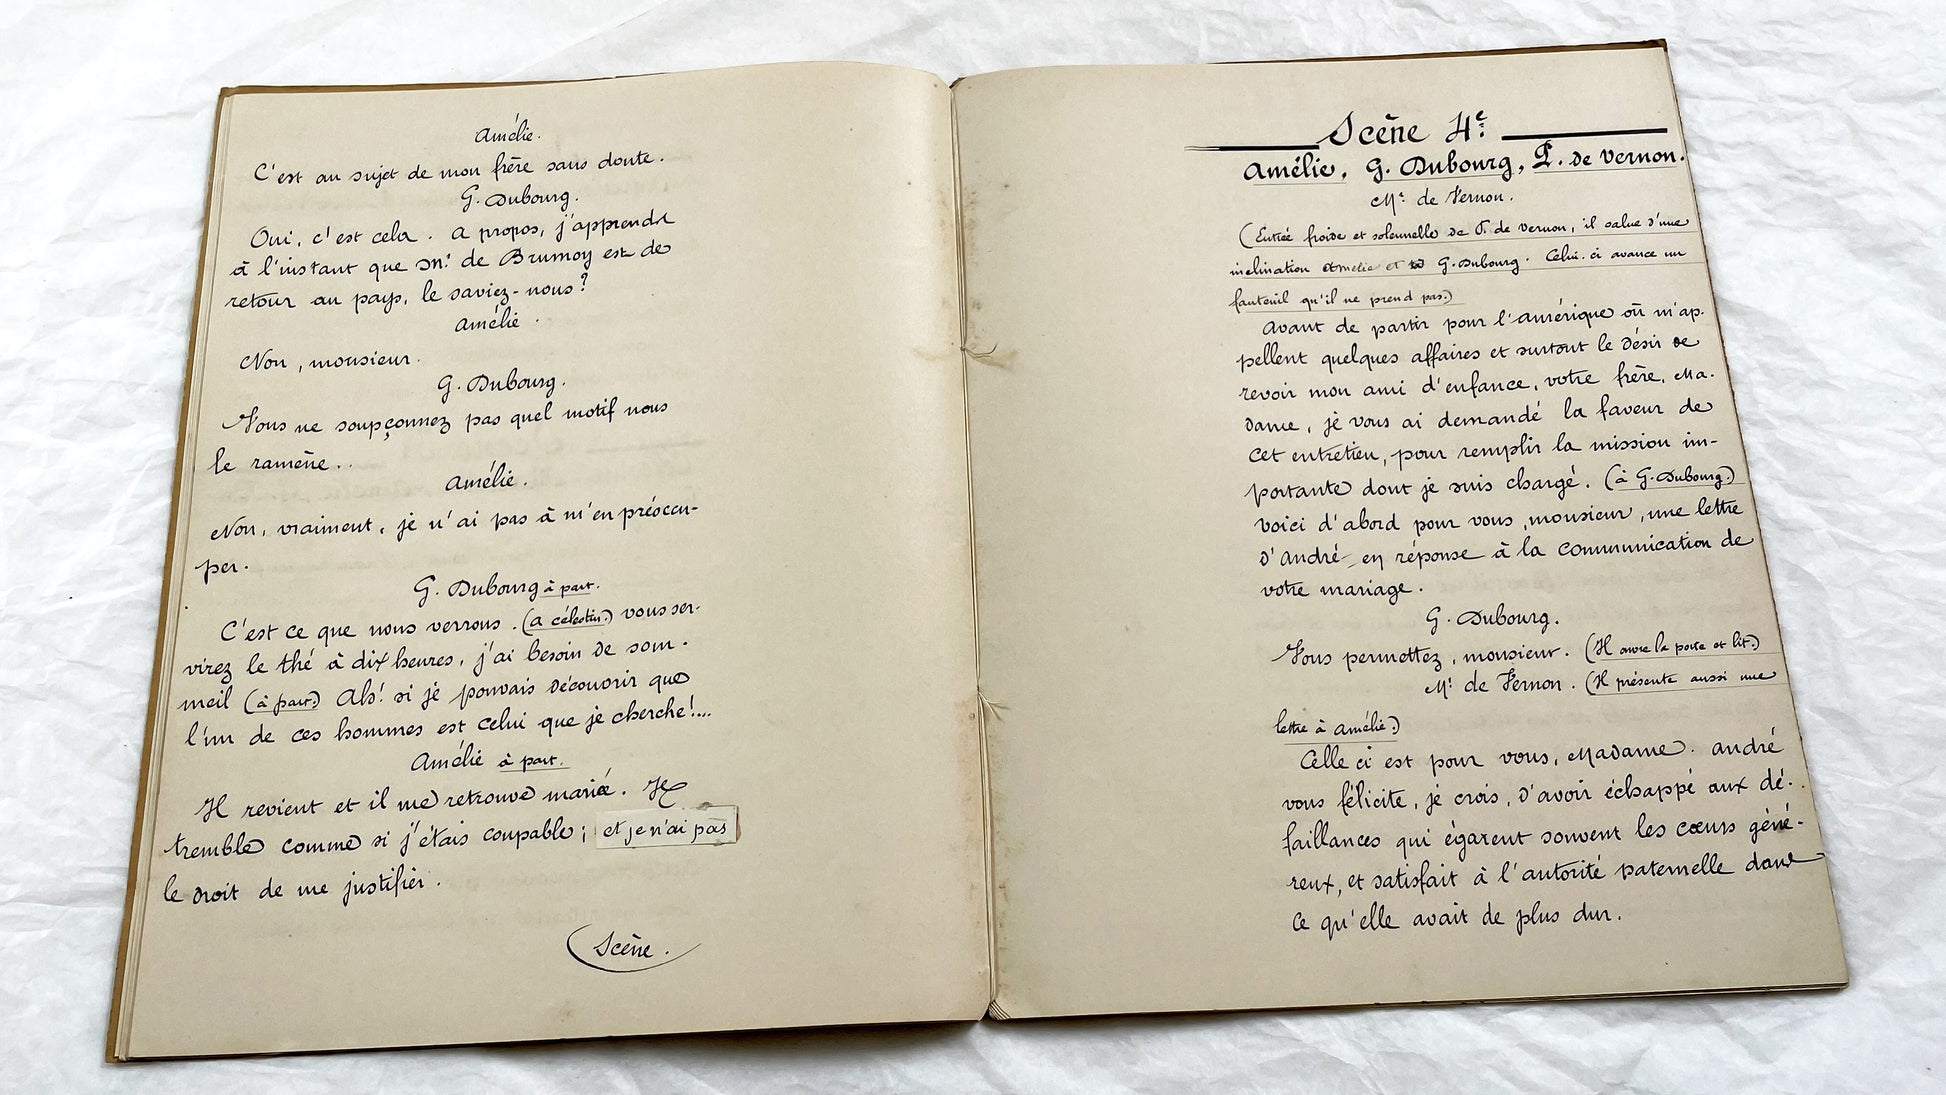 Amélie.
C'est au sujet de mon frère sans doute.
G. Dubourg.
Oui, c'est cela. A propos, j'apprends
à l'instant que Mr. de Brumoy est de
retour au pays, le saviez-vous?
Amélie.
Non, monsieur.
G. Dubourg.
Vous ne soupçonnez pas quel motif nous
le ramène..
Amélie.
Non, vraiment, je n'ai pas à m'en préoccu-
per.
G. Dubourg à part.
C'est ce que nous verrons. (A célestin.) vous ser-
virez le thé à dix heures, j'ai besoin de som-
meil (à part) Ah! si je pouvais découvrir que
l'un de ces hommes est celui que je cherche!....
Amélie à part.
Il revient et il me retrouve mariée. Je
tremble comme si j'étais coupable; et je n'ai pas
le droit de me justifier.
Scène.
Scène 4e.
Amélie, G. Dubourg, P. de Vernon.
Mr. de Vernon.
(Entrée froide et solennelle de P. de Vernon, il salue d'une
inclination Amélie et G. Dubourg. Celui-ci avance un
fauteuil qu'il ne prend pas.)
Avant de partir pour l'amérique où m'ap-
pellent quelques affaires et surtout le désir de
revoir mon ami d'enfance, votre frère, Ma-
dame, je vous ai demandé la faveur de
cet entretien, pour remplir la mission im-
portante dont je suis chargé. (à G. Dubourg.)
Voici d'abord pour vous, monsieur, une lettre
d'André en réponse à la communication de
votre mariage.
G. Dubourg.
Vous permettez, monsieur. (Il ouvre la porte et lit.)
Mr. de Vernon. (Il présente aussi une
lettre à Amélie.)
Celle ci est pour vous, Madame. André
vous félicite, je crois, d'avoir échappé aux dé-
faillances qui égarent souvent les cœurs géné-
reux, et satisfait à l'autorité paternelle dans
ce qu'elle avait de plus dur.